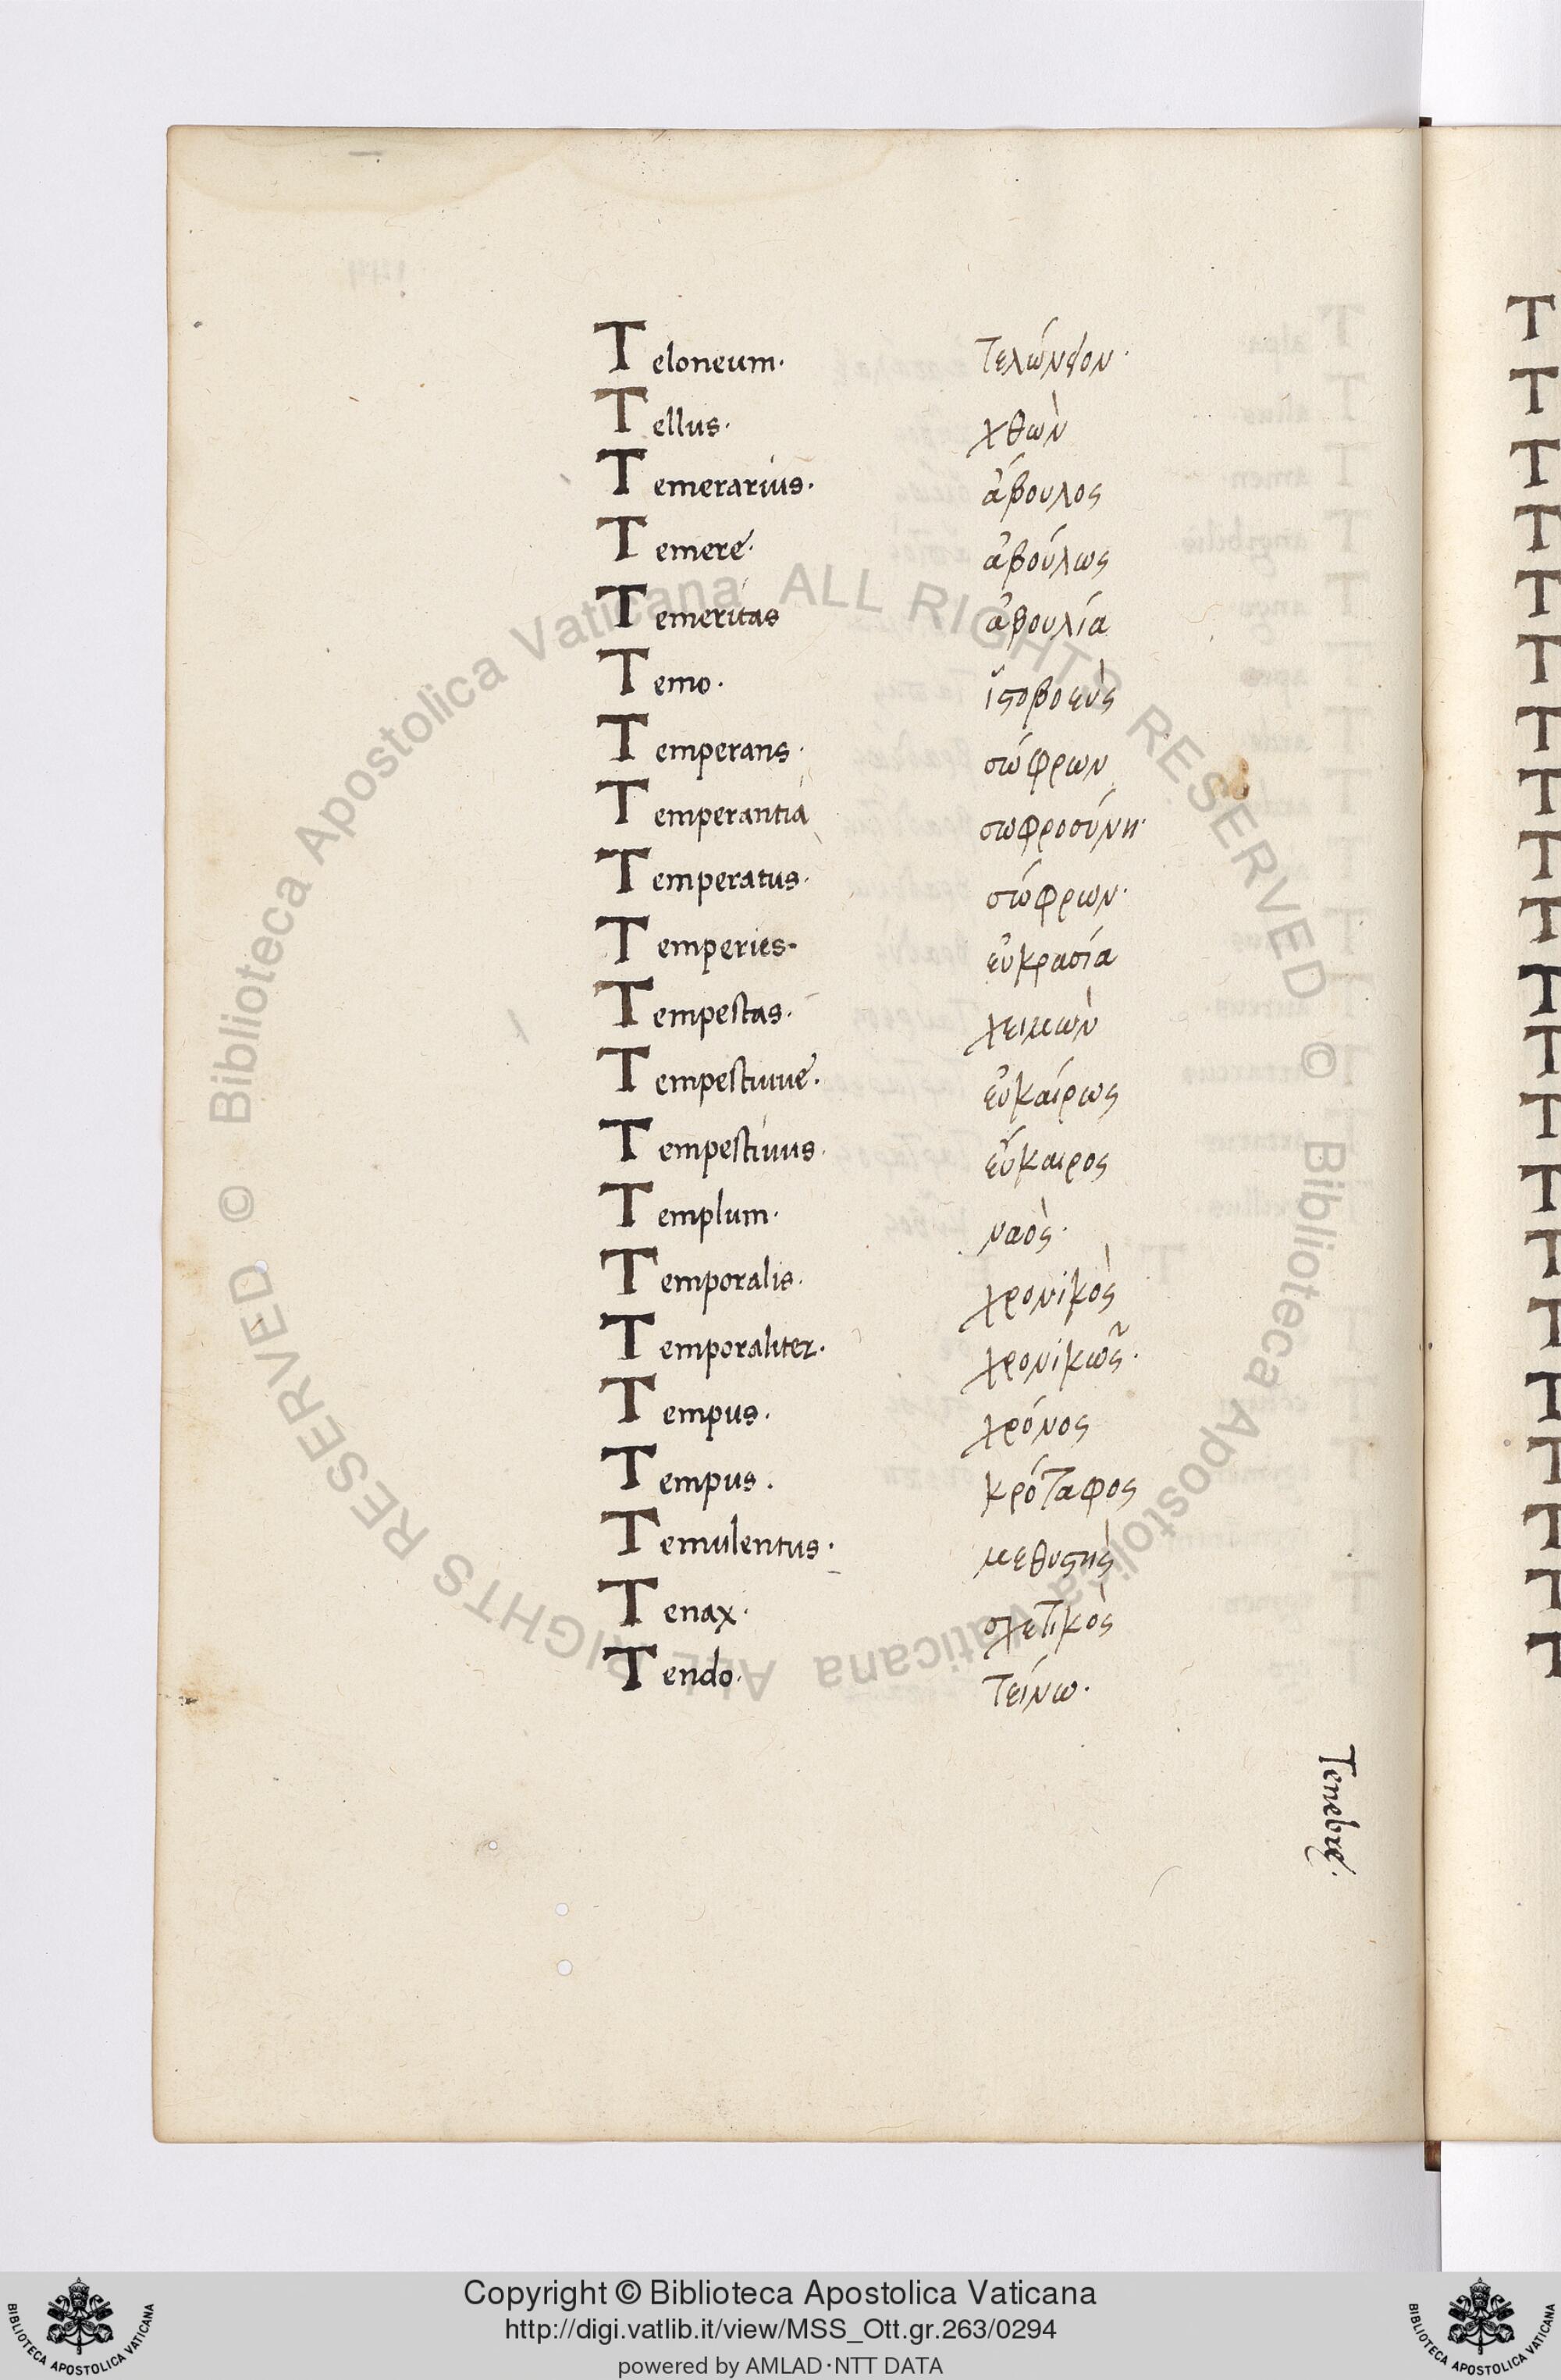 Teloneum· τελώνειον·
Tellus· χθὼν
Temerarius· ἄβουλος
Temere· ἀβούλως
Temeritas ἀβουλία
Temo· ἱστοβοεὺς
Temperans· σώφρων
Temperantia σωφροσύνη·
Temperatus· σώφρων·
Temperies· εὐκρασία
Tempestas· χειμὼν
Tempestiuue· εὐκαίρως
Tempestiuus· εὔκαιρος
Templum· ναὸς·
Temporalis· χρονικὸς
Temporaliter· χρονικῶς·
Tempus· χρόνος
Tempus· κρόταφος
Temulentus· μεθυστὴς
Tenax· σχετικὸς
Tendo· τείνω·
Tenebrę·
Biblioteca Apostolica Vaticana ALL RIGHTS RESERVED ©
Biblioteca Apostolica Vaticana ALL RIGHTS RESERVED ©
Copyright © Biblioteca Apostolica Vaticana
http://digi.vatlib.it/view/MSS_Ott.gr.263/0294
powered by AMLAD·NTT DATA
BIBLIOTECA APOSTOLICA VATICANA
BIBLIOTECA APOSTOLICA VATICANA